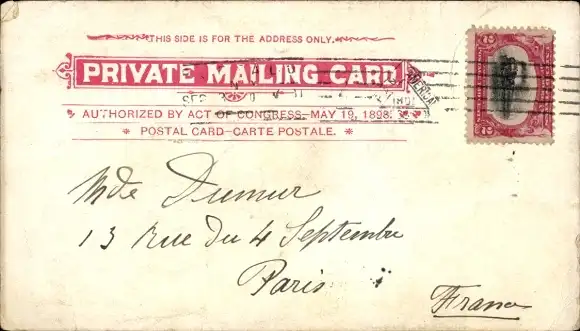 THIS SIDE IS FOR THE ADDRESS ONLY.
PRIVATE MAILING CARD
AUTHORIZED BY ACT OF CONGRESS-MAY 19, 1898.
POSTAL CARD-CARTE POSTALE.
Mde Dumur
13 Rue du 4 Septembre
Paris
France